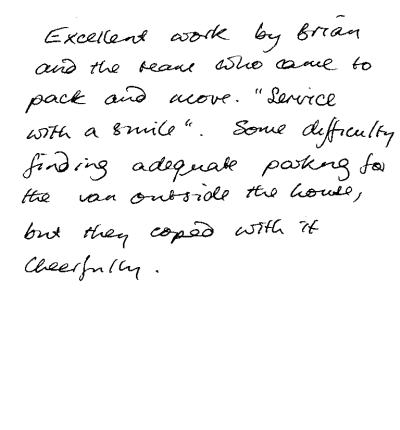 Excellent work by Brian
and the team who came to
pack and move. "Service
with a smile". Some difficulty
finding adequate parking for
the van outside the house,
but they coped with it
cheerfully.